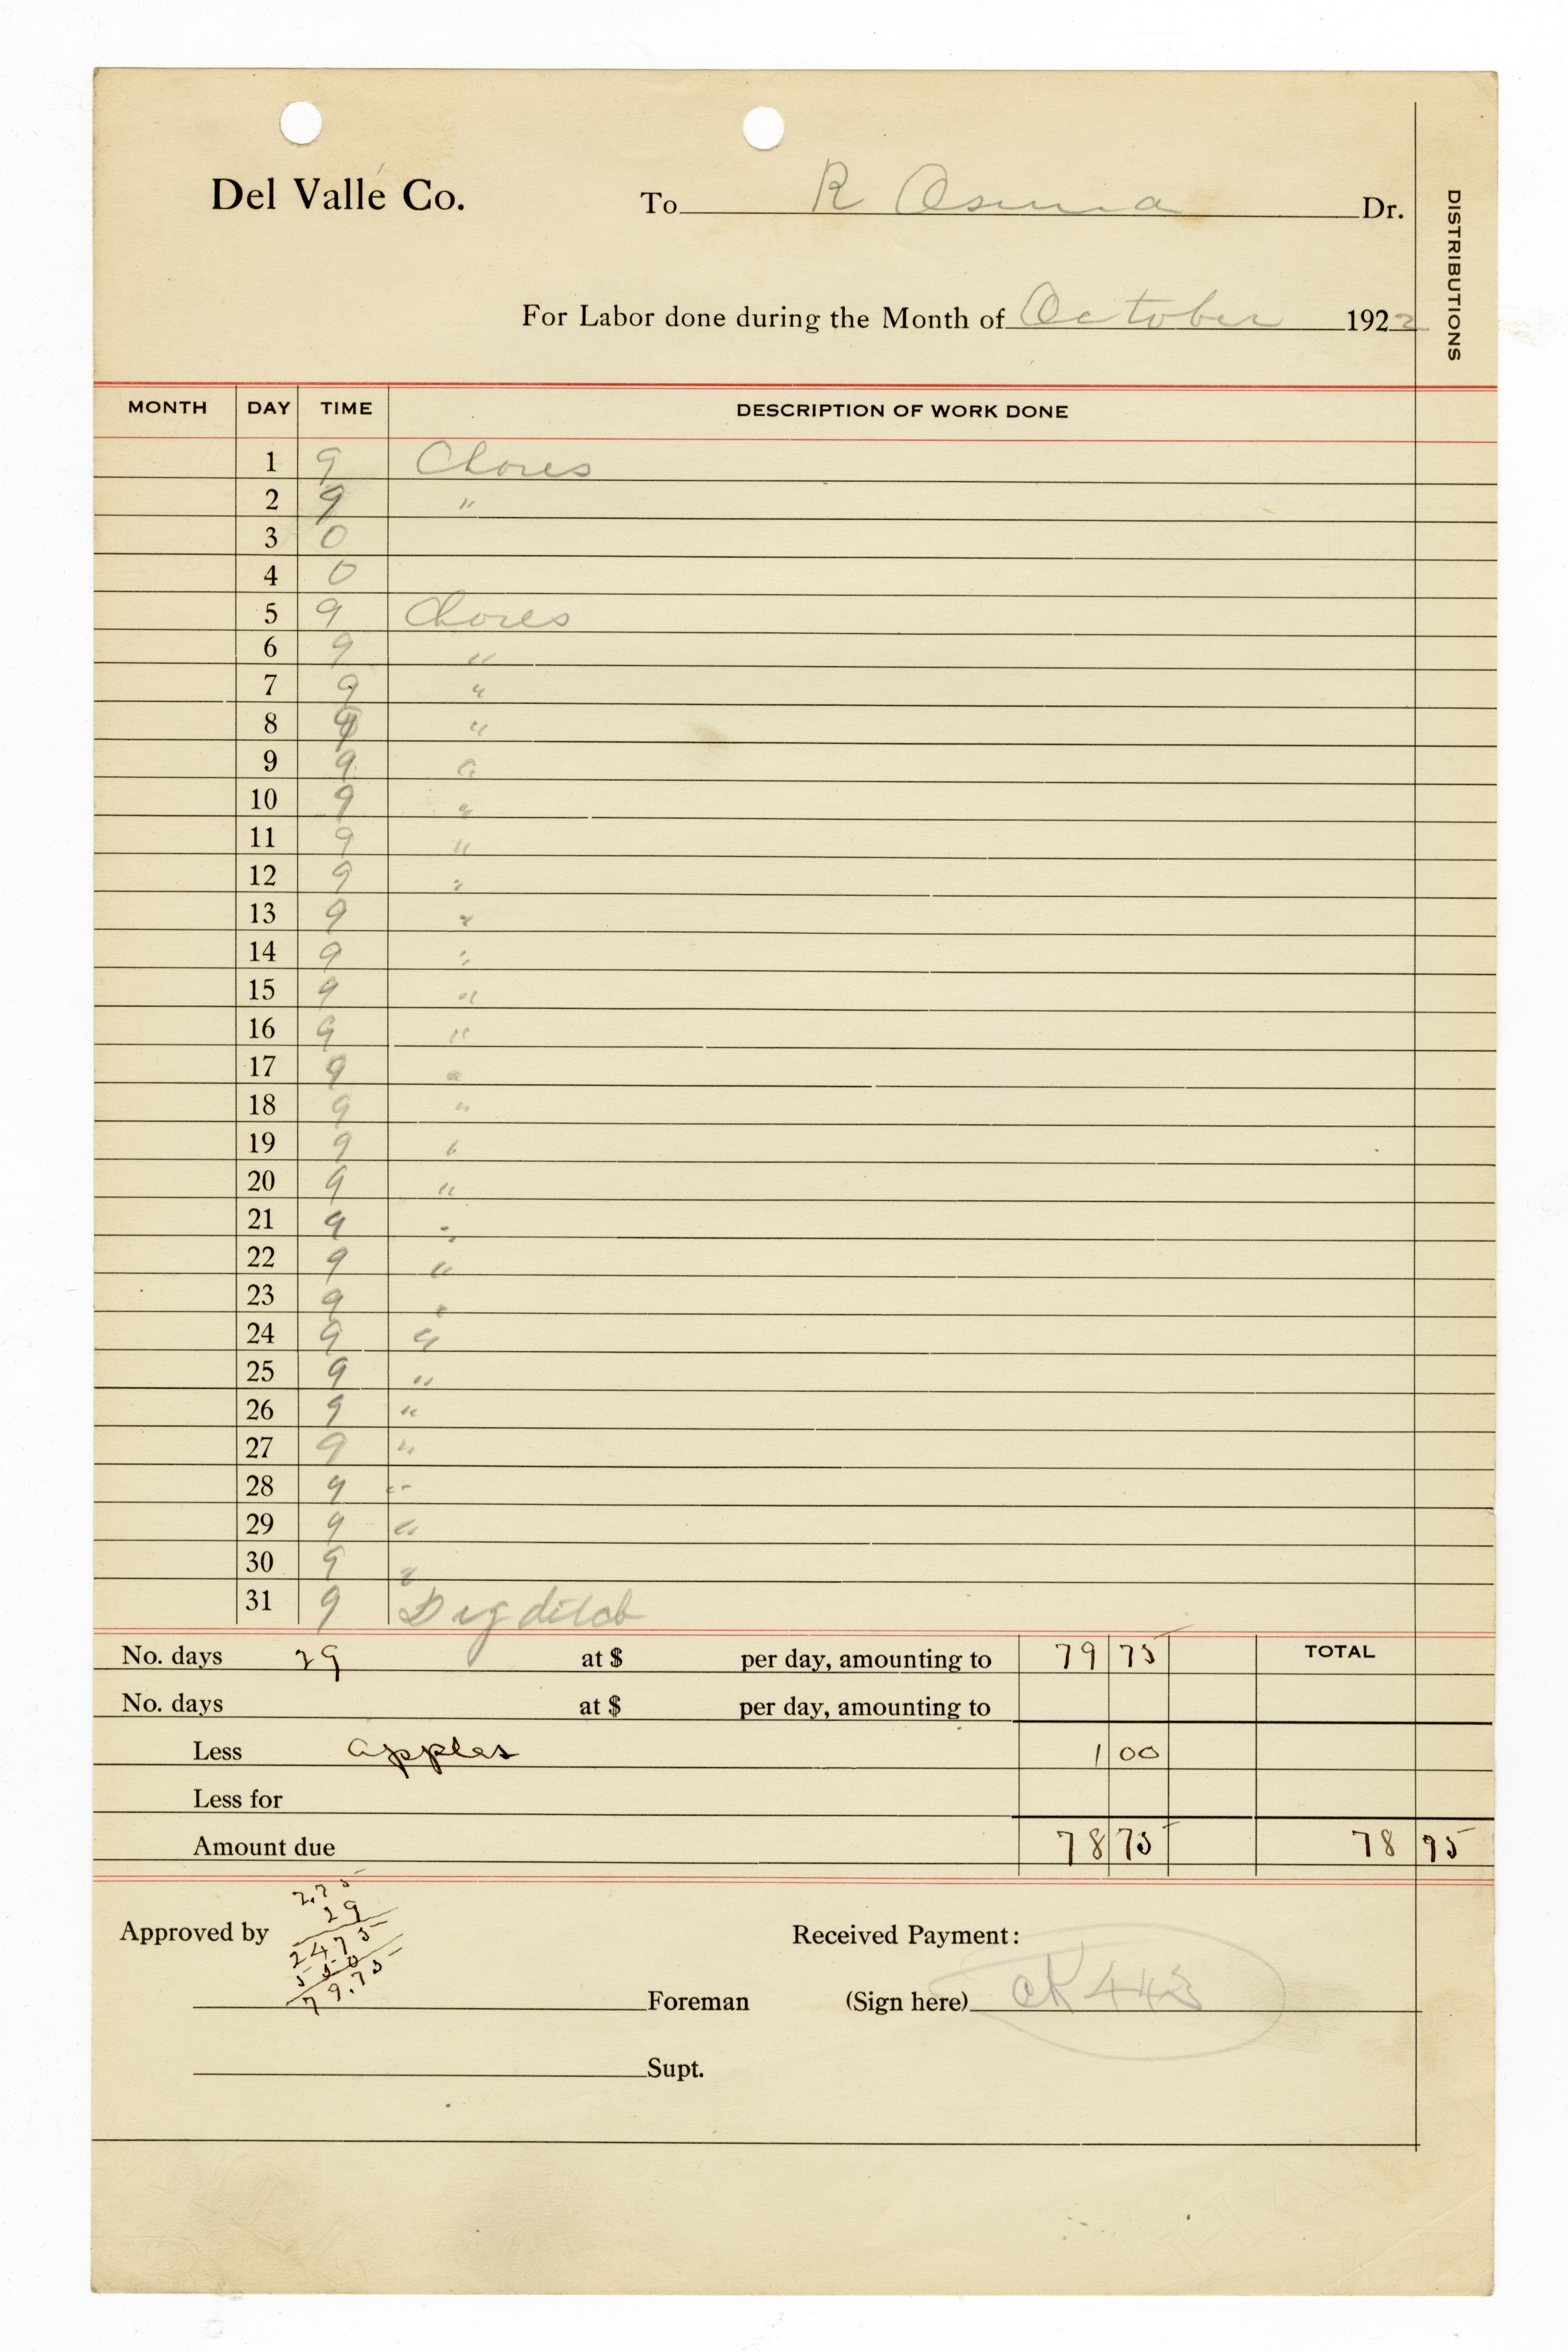 Del Valle Co. To R Osuna Dr.
DISTRIBUTIONS
For Labor done during the Month of October 1922
MONTH DAY TIME DESCRIPTION OF WORK DONE
1 9 Chores
2 9 "
3 0
4 0
5 9 Chores
6 9 "
7 9 "
8 9 "
9 9 "
10 9 "
11 9 "
12 9 "
13 9 "
14 9 "
15 9 "
16 9 "
17 9 "
18 9 "
19 9 "
20 9 "
21 9 "
22 9 "
23 9 "
24 9 "
25 9 "
26 9 "
27 9 "
28 9 "
29 9 "
30 9 "
31 9 Dig ditch
No. days 29 at $ per day, amounting to 79 75 TOTAL
No. days at $ per day, amounting to
Less apples 1 00
Less for
Amount due 78 75 78 75
2.75
29
2475
550
79.75
Approved by Received Payment:
Foreman (Sign here) CK 443
Supt.